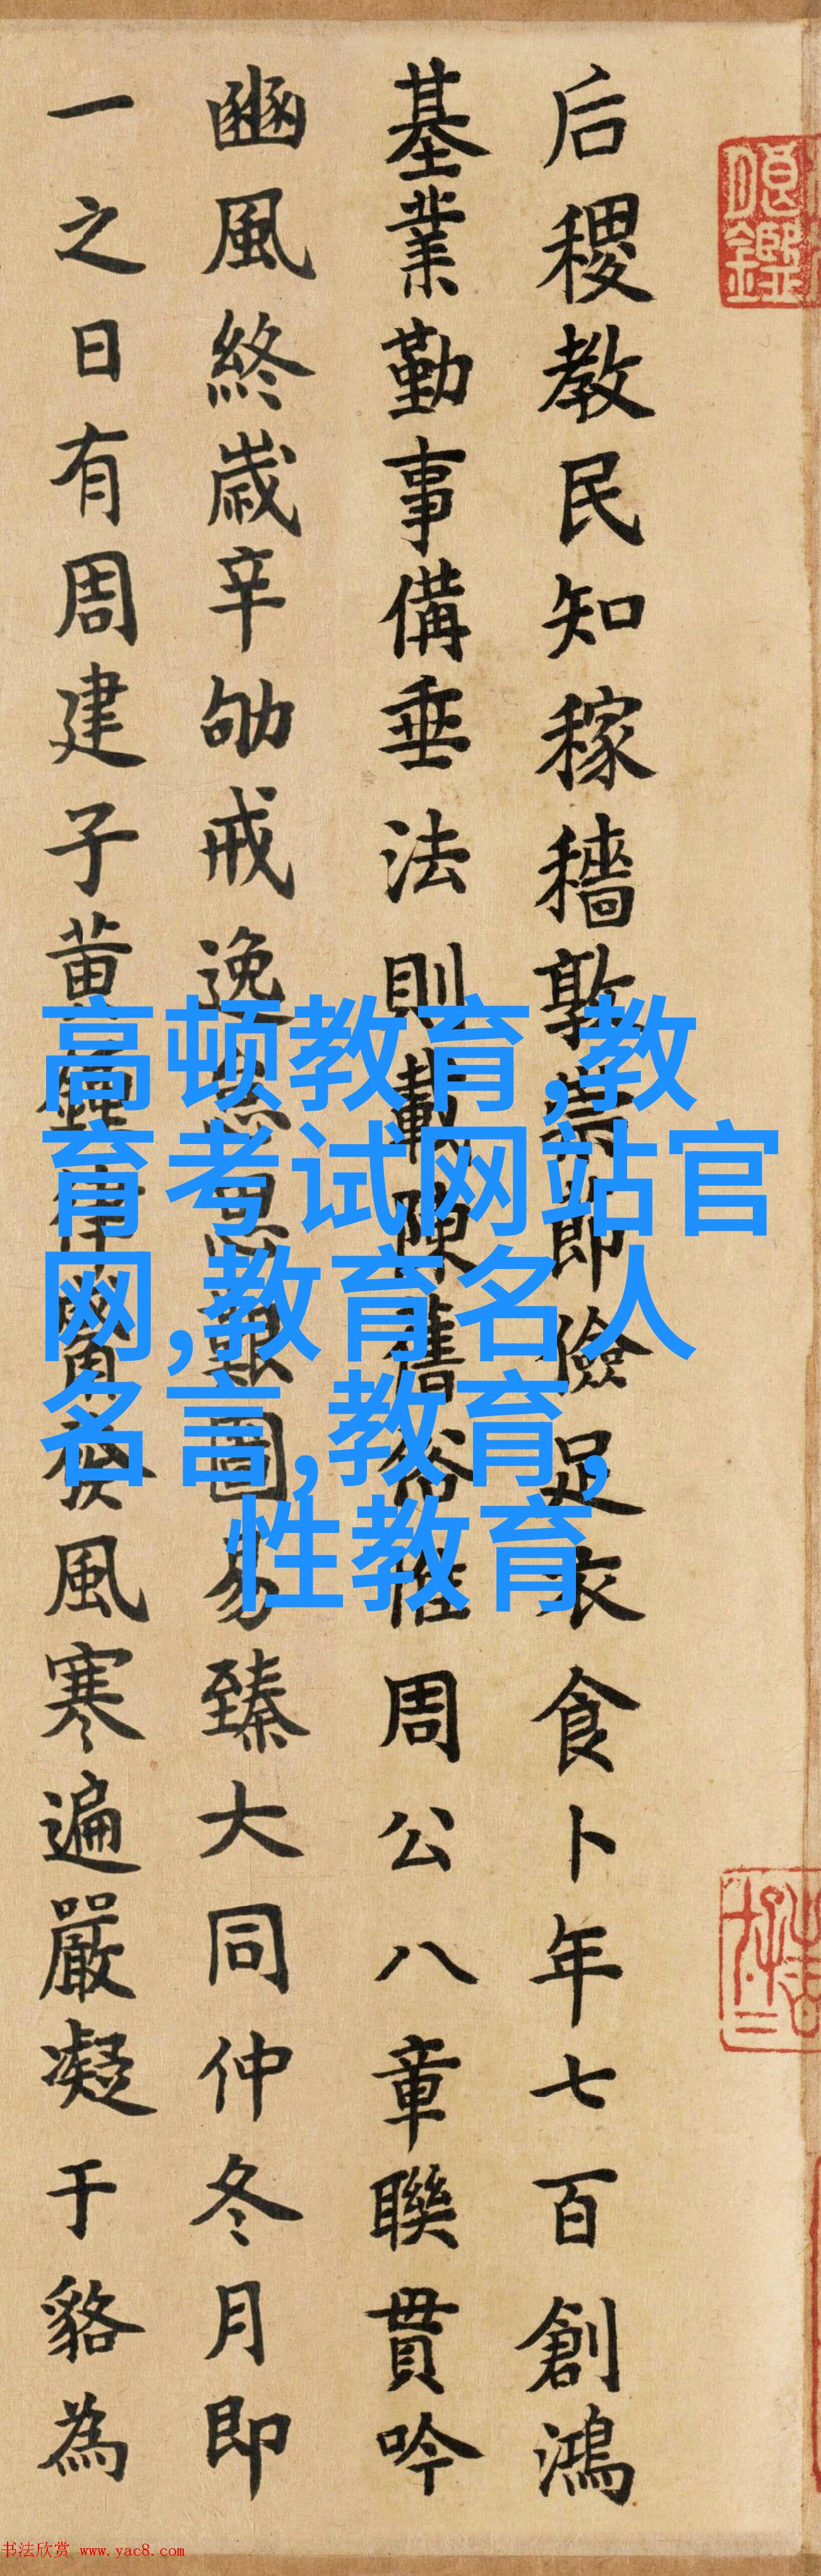 后稷教民知稼穡敦崇節儉足衣食卜年七百創鴻
基業勤事備垂法則載陳舊俗惟周公八章聯貫吟
豳風終歲辛劬戒逸思艱圖易臻大同仲冬月即
一之日有周建子黃鐘律候風寒遍嚴凝于貉為
高顿教育,教
育考试网站官
网,教育名人
名言,教育,
性教育
书法欣赏 www.yac8.com